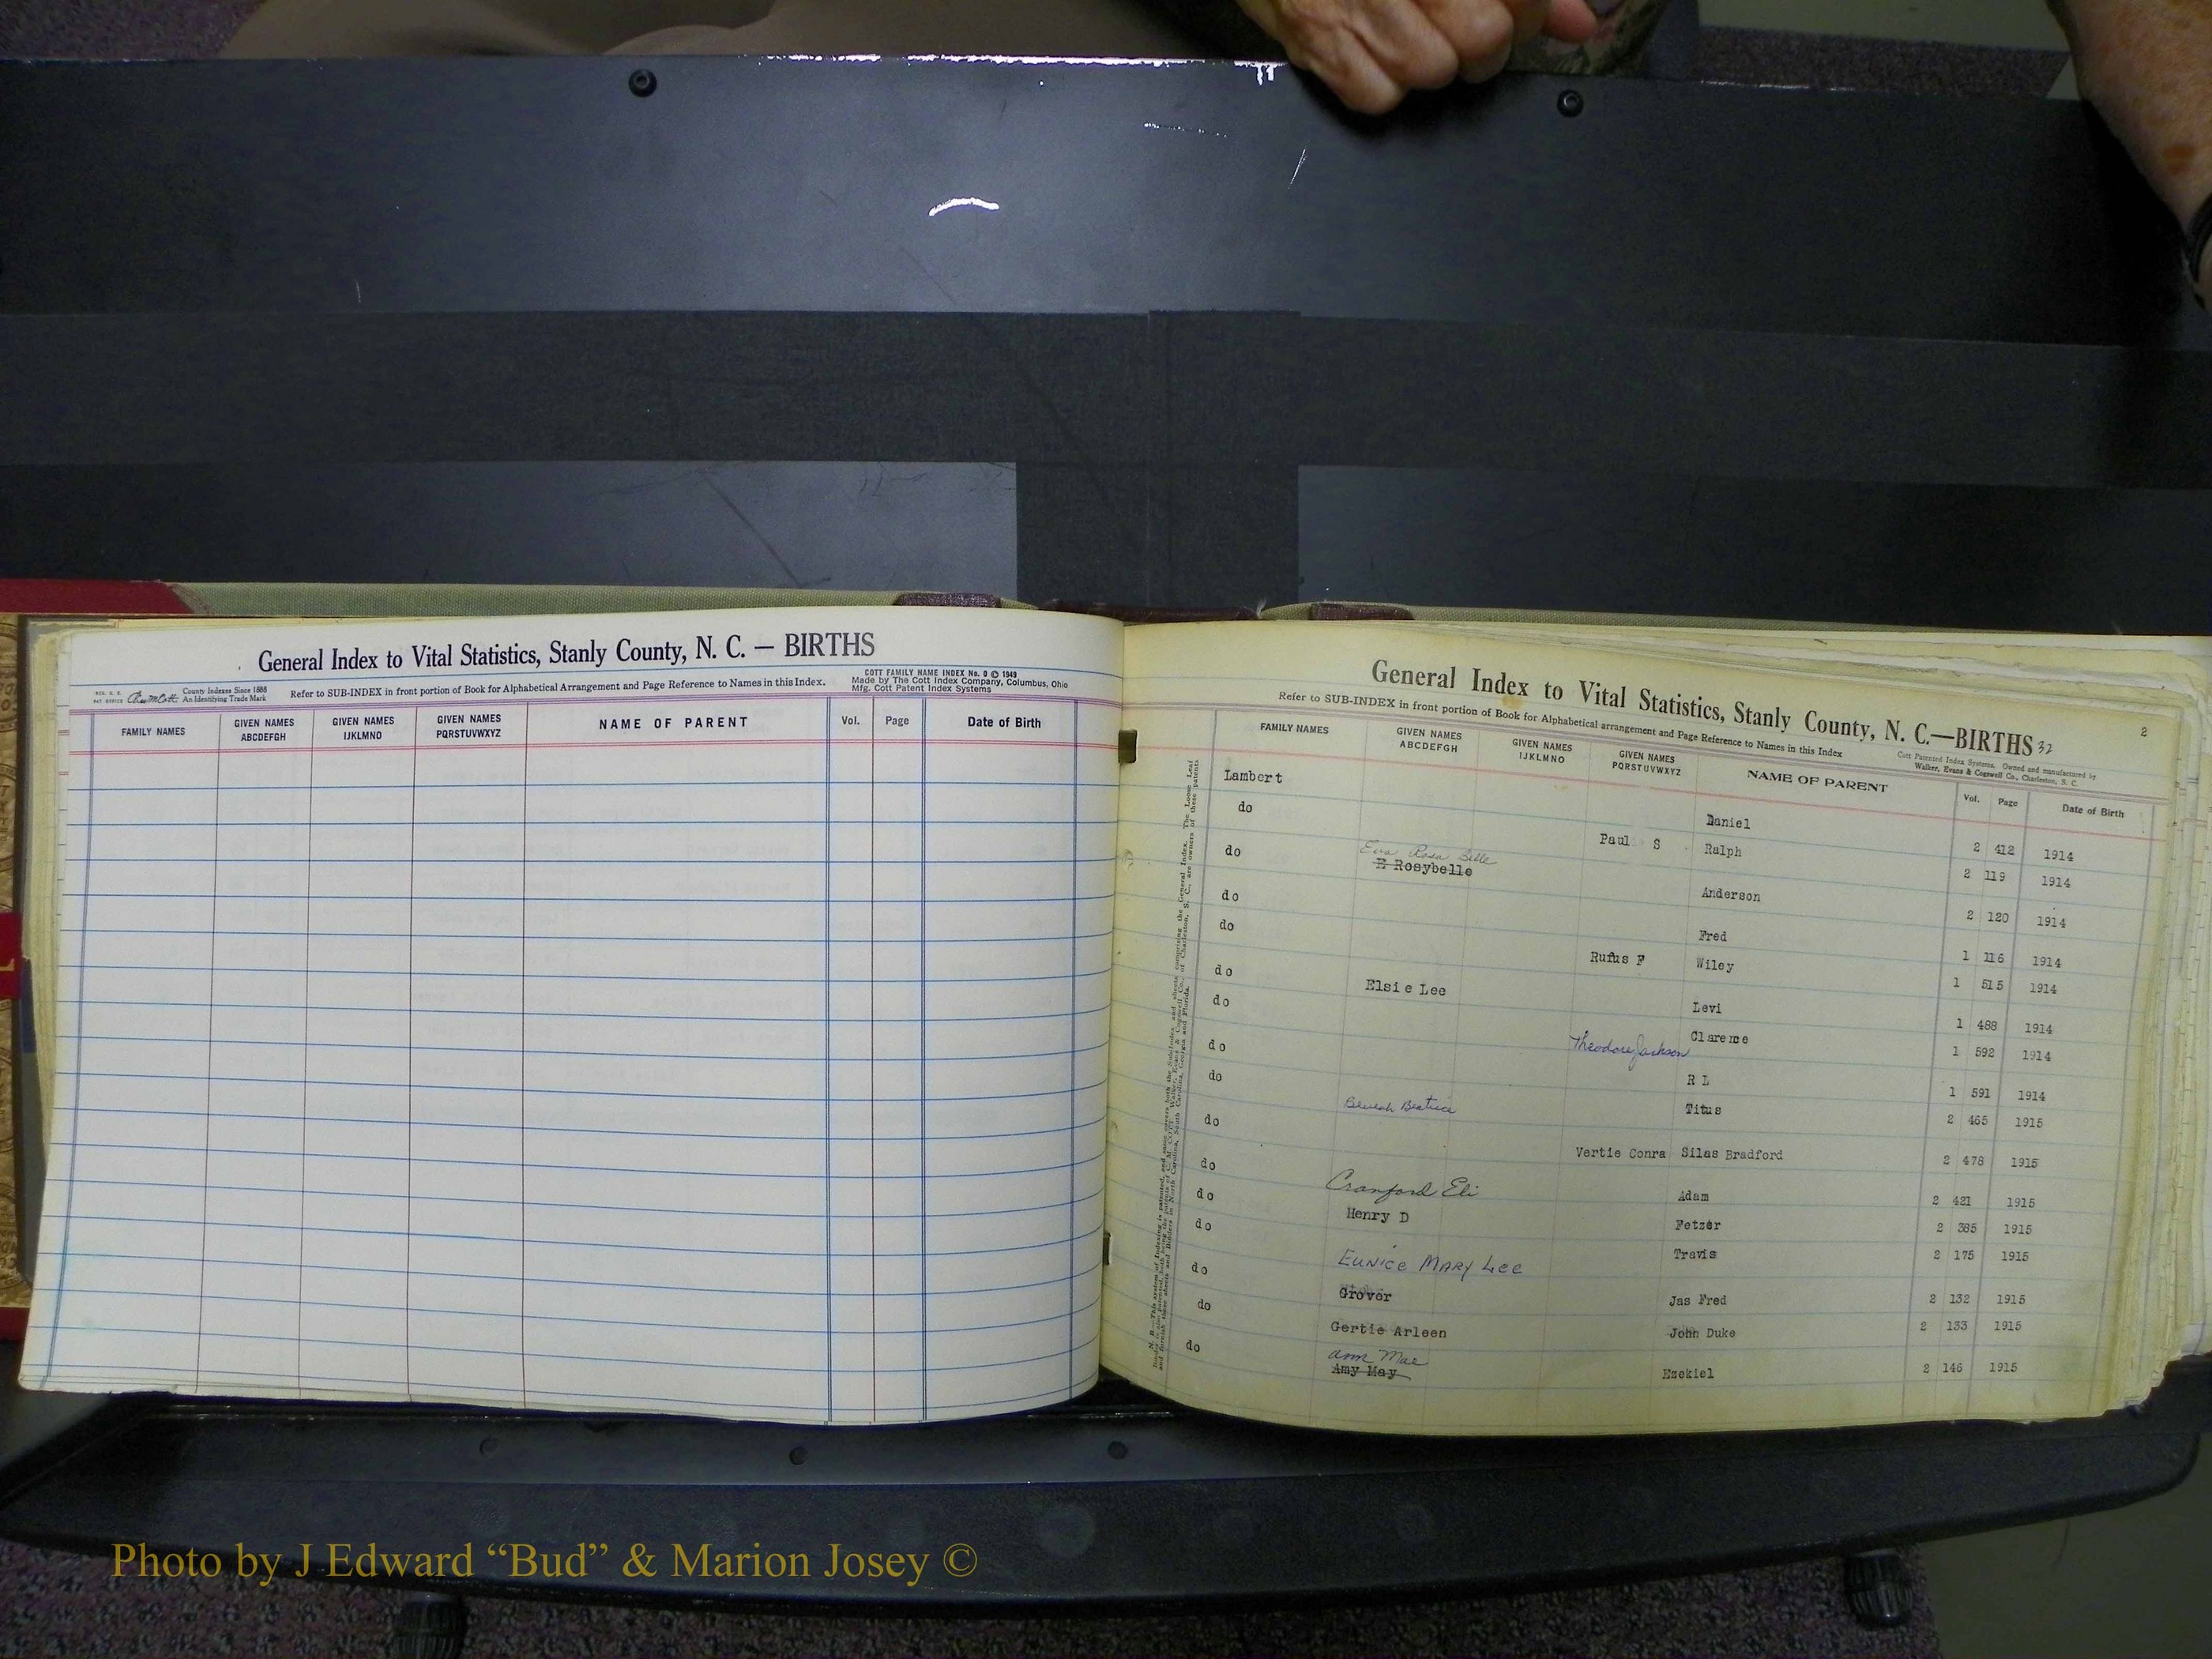 General Index to Vital Statistics, Stanly County, N. C. — BIRTHS
County Indexes Since 1888
An Identifying Trade Mark
Refer to SUB-INDEX in front portion of Book for Alphabetical Arrangement and Page Reference to Names in this Index.
COTT FAMILY NAME INDEX No. 0 © 1949
Made by The Cott Index Company, Columbus, Ohio
Mfg. Cott Patent Index Systems
FAMILY NAMES GIVEN NAMES ABCDEFGH GIVEN NAMES IJKLMNO GIVEN NAMES PQRSTUVWXYZ NAME OF PARENT Vol. Page Date of Birth
General Index to Vital Statistics, Stanly County, N. C.—BIRTHS 32
2
Refer to SUB-INDEX in front portion of Book for Alphabetical arrangement and Page Reference to Names in this Index
Cott Patented Index Systems. Owned and manufactured by
Walker, Evans & Cogswell Co., Charleston, S. C.
FAMILY NAMES GIVEN NAMES ABCDEFGH GIVEN NAMES IJKLMNO GIVEN NAMES PQRSTUVWXYZ NAME OF PARENT Vol. Page Date of Birth
Lambert Daniel 2 412 1914
do Paul S Ralph 2 119 1914
do Eva Rosa Belle E Rosybelle Anderson 2 120 1914
do Fred 1 116 1914
do Rufus F Wiley 1 515 1914
do Elsie Lee Levi 1 488 1914
do Clarence 1 592 1914
do Theodore Jackson R L 1 591 1914
do Titus 2 465 1915
do Beatrice Vertie Conra Silas Bradford 2 478 1915
do Cranford Eli Adam 2 421 1915
do Henry D Fetzer 2 385 1915
do Travis 2 175 1915
do Eunice Mary Lee Grover Jas Fred 2 132 1915
do Gertie Arleen John Duke 2 133 1915
do Ann Mae Amy May Ezekiel 2 146 1915
Photo by J Edward “Bud” & Marion Josey ©